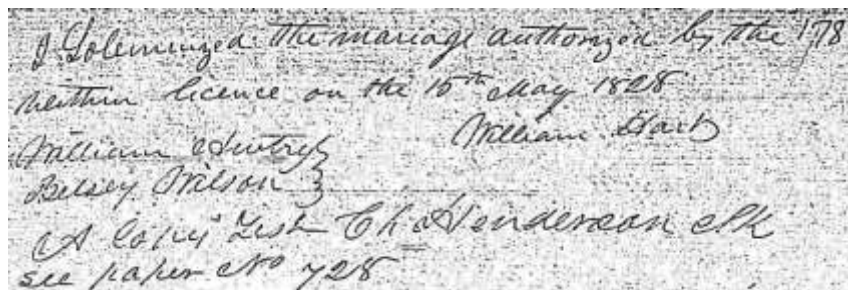 I Solemnized the mariage authorized by the 178
within licence on the 15th May 1828
William Hart
William Gentry
Betsey Wilson
A Copy Test Ch Henderson Clk
see paper No 728